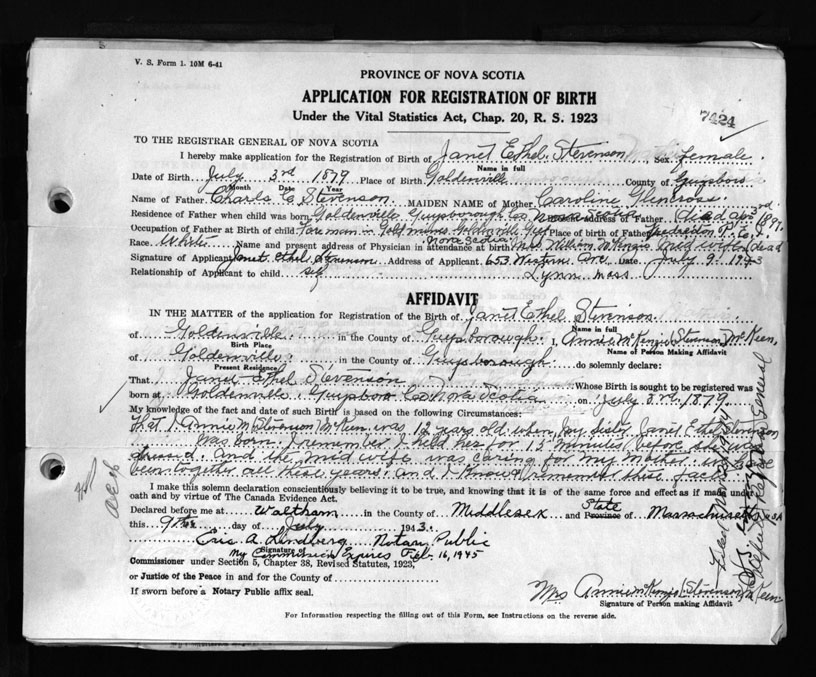 V. S. Form 1. 10M 6-41
PROVINCE OF NOVA SCOTIA
APPLICATION FOR REGISTRATION OF BIRTH
Under the Vital Statistics Act, Chap. 20, R. S. 1923
7424
TO THE REGISTRAR GENERAL OF NOVA SCOTIA
I hereby make application for the Registration of Birth of Janet Ethel Stevenson Sex Female.
Name in full
Date of Birth July 3rd 1879 Place of Birth Goldenville County of Guysboro
Month Date Year
Name of Father Charls C Stevenson MAIDEN NAME of Mother Caroline Glencross
Residence of Father when child was born Goldenville Guysborough Co address of Father died 1897
Occupation of Father at Birth of child Foreman in Gold mines Goldenville Place of birth of Father
Race White Name and present address of Physician in attendance at birth Mrs William McKenzie mid wife dead
Nova Scotia
Signature of Applicant Janet Ethel Stevenson Address of Applicant 653 Western Ave Date July 9 1943
Relationship of Applicant to child self Lynn Mass
AFFIDAVIT
IN THE MATTER of the application for Registration of the Birth of Janet Ethel Stevenson
Name in full
of Goldenville in the County of Guysborough I, Annie McKenzie (Stevenson) McKeen,
Birth Place Name of Person Making Affidavit
of Goldenville in the County of Guysborough do solemnly declare:
Present Residence
That Janet Ethel Stevenson Whose Birth is sought to be registered was
born at Goldenville Guysboro Co Nova Scotia on July 3rd 1879
My knowledge of the fact and date of such Birth is based on the following Circumstances:
That I Annie M Stevenson McKeen was 12 years old when my sister Janet Ethel Stevenson
was born. I remember I held her for 15 minutes before she was
dressed. and the mid wife was caring for my Mother.
been together all these years. and I know & remember these facts
I make this solemn declaration conscientiously believing it to be true, and knowing that it is of the same force and effect as if made under
oath and by virtue of The Canada Evidence Act.
Declared before me at Waltham in the County of Middlesex and Province State of Massachusetts USA
this 9th day of July 1943.
Eric A. Lindberg Notary Public
Signature of
My Commission Expires Feb. 16, 1945
Commissioner under Section 5, Chapter 38, Revised Statutes, 1923,
or Justice of the Peace in and for the County of
If sworn before a Notary Public affix seal.
Mrs Annie McKenzie (Stevenson) McKeen
Signature of Person making Affidavit
For Information respecting the filling out of this Form, see Instructions on the reverse side.
Deputy Registrar General